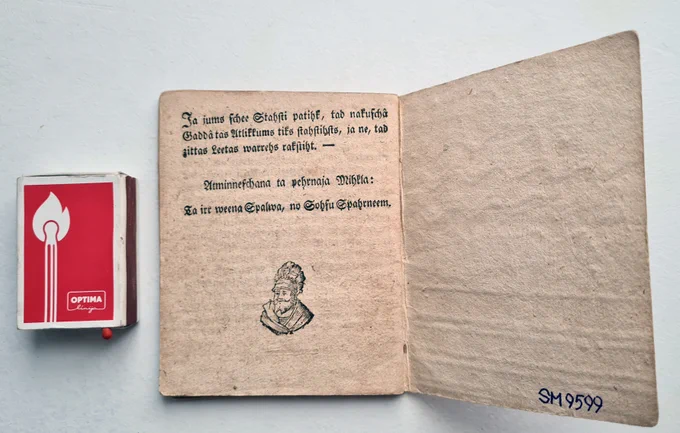 Ja jums schee Stahsti patihk, tad nakuschâ
Gaddâ tas Atlikkums tiks stahstihsts, ja ne, tad
zittas Leetas warrehs rakstiht. —
Atminneschana ta pehrnaja Mihkla:
Ta irr weena Spalwa, no Sohsu Spahrneem.
OPTIMA
SM 9599